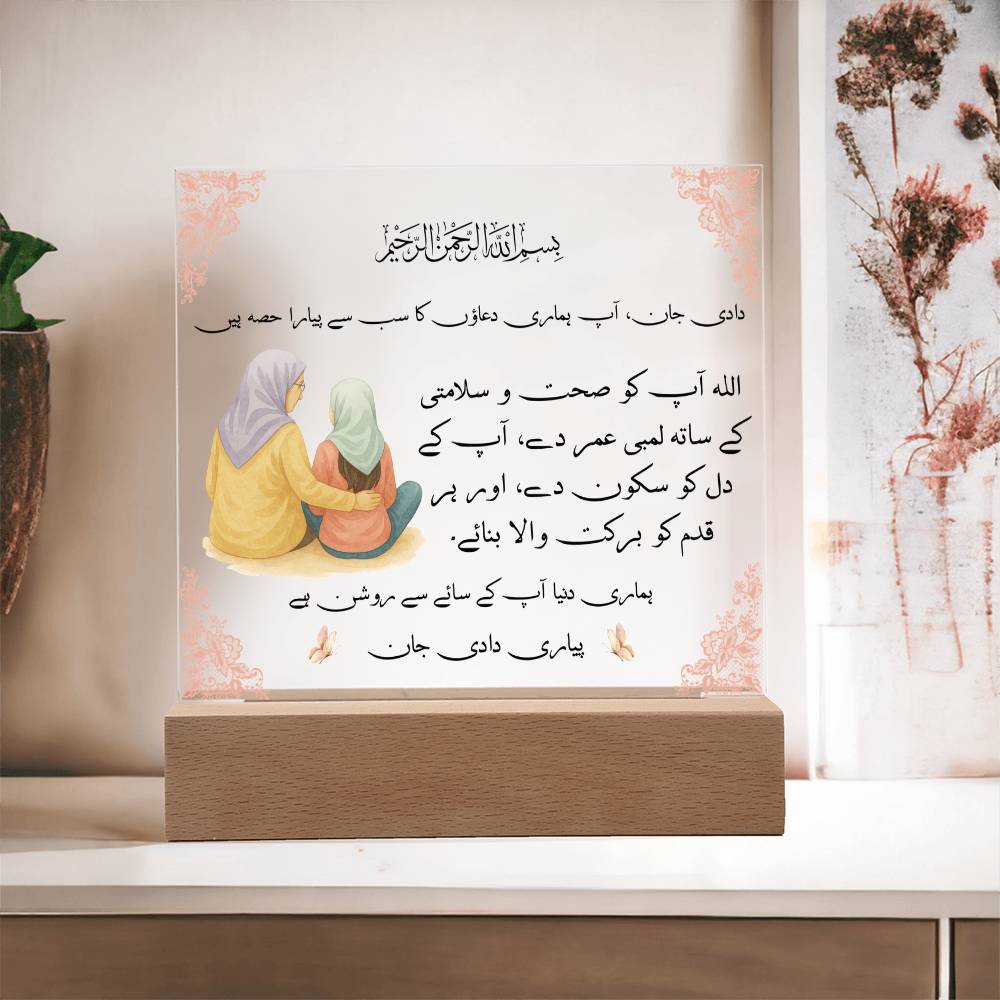 بِسْمِ اللهِ الرَّحْمٰنِ الرَّحِيْمِ
دادی جان، آپ ہماری دعاؤں کا سب سے پیارا حصہ ہیں
اللہ آپ کو صحت و سلامتی
کے ساتھ لمبی عمر دے، آپ کے
دل کو سکون دے، اور ہر
قدم کو برکت والا بنائے.
ہماری دنیا آپ کے سائے سے روشن ہے
پیاری دادی جان